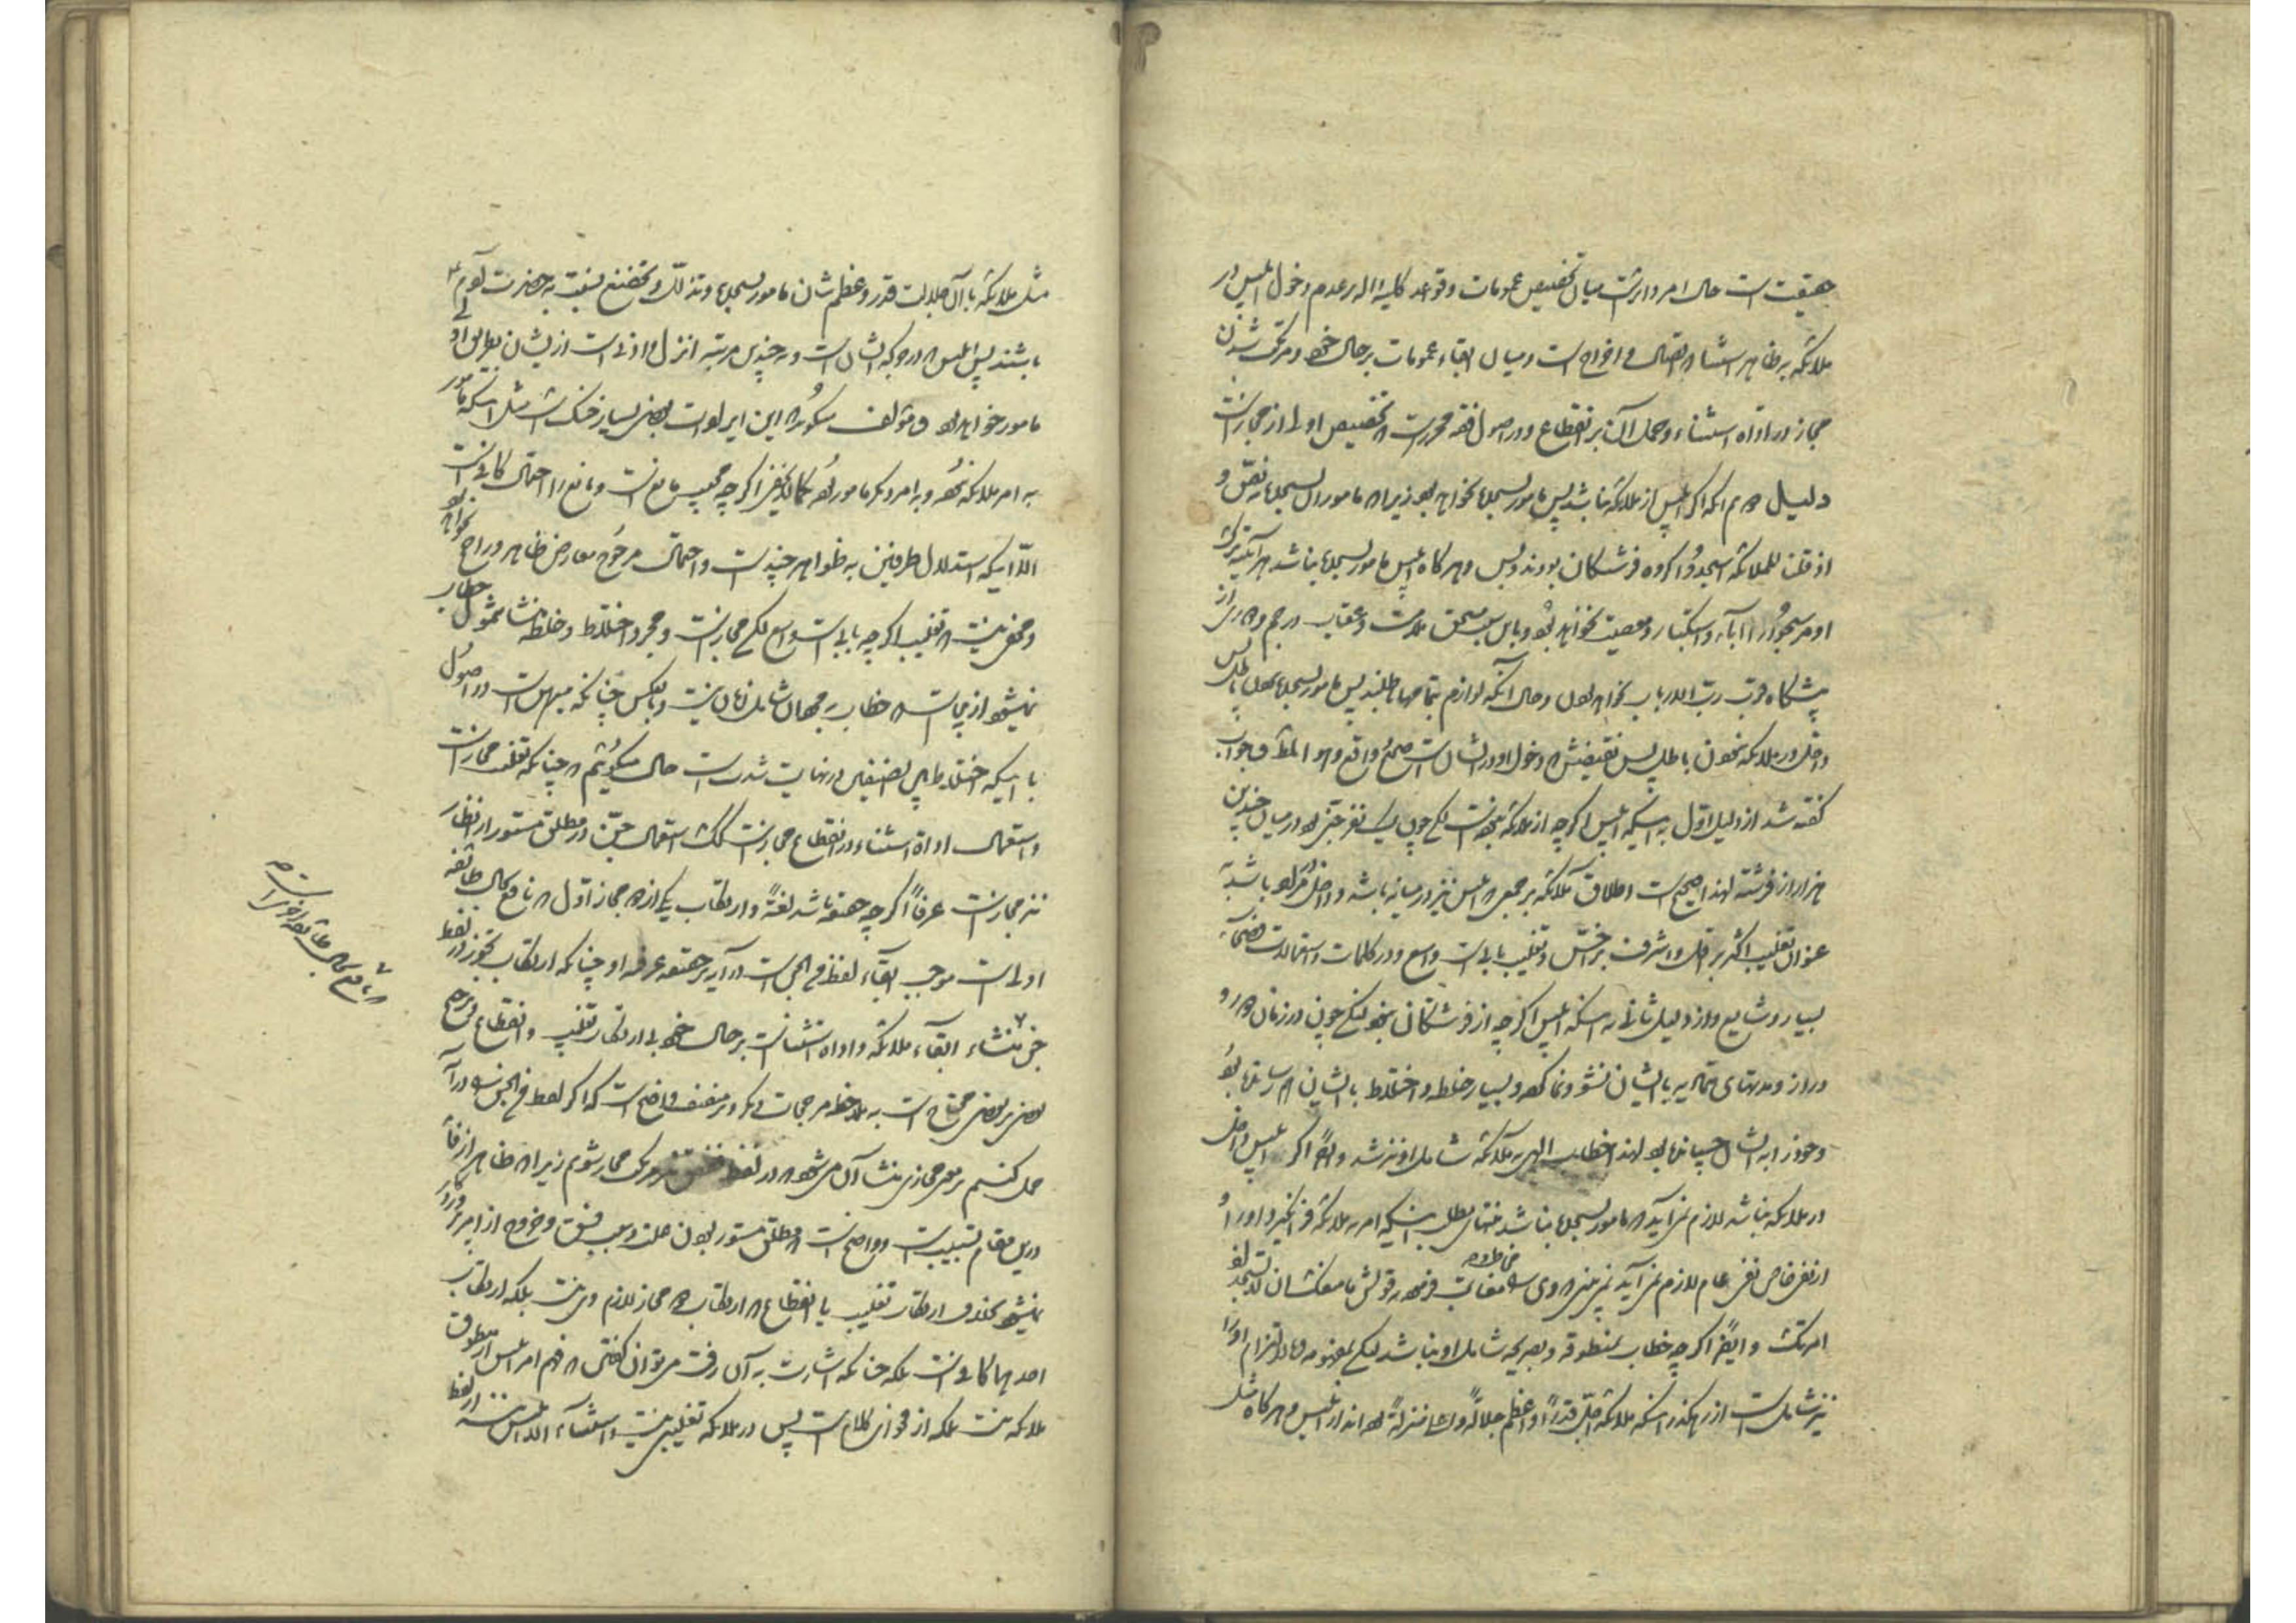 حقیقت است حال امر دایرست میان تخصیص عمومات و قواعد کلیه داله بر عدم دخول ابلیس در
ملائکه به ظاهر استثنا که اتصال و اخراج است و میان ابقاء عمومات بر حال خود و مرتکب شدن
مجاز در اداة استثناء و حمل آن بر انقطاع و در اصول فقه محررست که تخصیص اولی از مجازست
دلیل دوم آنکه اگر ابلیس از ملائکه نباشد پس مامور بسجده نخواهد بود زیرا که ماموران بسجده بنص و
اذ قلنا للملائکة اسجدوا گروه فرشتگان بودند و بس و هرگاه ابلیس مامور بسجده نباشد هر آینه ترک
او مر سجود را اباء و استکبار و معصیت نخواهد بود و باین سبب مستحق ملامت و عقاب و رجم و دوری از
پیشگاه قرب رب الارباب نخواهد بود و حال آنکه لوازم بتمامها باطلند پس مامور بسجده نبودن باطل پس
داخل در ملائکه نبودن باطل پس نقیضش که دخول او در ایشان است صحیح و واقع و هو المط و جواب
گفته شد از دلیل اول به اینکه ابلیس اگرچه از ملائکه نبوده است لکن چون یک نفر جنی بود در میان چندین
هزار از فرشته لهذا صحیح است اطلاق ملائکه بر جمعی که ابلیس نیز در میانه باشد و داخل بوده باشد به
عنوان تغلیب اکثر بر اقل و اشرف بر اخس و تغلیب بابی است واسع و در کلمات و استعمالات فصحاء
بسیار و شایع و از دلیل ثانی به اینکه ابلیس اگرچه از فرشتگان نبود لکن چون در زمان دور و
دراز و مدتهای متمادیه با ایشان نشو و نما کرده و بسیار خلطه و اختلاط با ایشان بود
و خود را به ایشان چسپانیده بود لهذا خطاب الهی به ملائکه شامل او نیز شد و ایضا اگر ابلیس داخل
در ملائکه نباشد لازم نمی آید که مامور بسجده نباشد منتهای مطلب اینکه امر به ملائکه او را
از نفی خاص نفی عام لازم نمی آید نمی بینی که وی در قولش ما منعک ان لا تسجد
امرتک و ایضا اگرچه خطاب بمنطوقه و بصریحه شامل او نباشد لکن بمفهومه و بالتزام او را
نیز شامل است از رهگذر اینکه ملائکه اجل قدرا و اعظم جلالة و منزلة بوده اند از ابلیس و هرگاه مثل
مثل ملائکه با آن جلالت قدر و عظم شان مامور بسجده و تذلل و تخضع نسبت به حضرت آدم ع
باشند پس ابلیس که در جوکه ایشان است و به چندین مرتبه انزل و ادنی است از ایشان بطریق اولی
مامور خواهد بود و مؤلف میگوید که این ایرادات بعضی بسیار خنک است مثل اینکه مامور
به امر ملائکه نبود و به امر دیگر مامور بود کما لا یخفی اگرچه مجیب مانع است و مانع را احتمال کافی است
الا اینکه استدلال طرفین به ظواهر چندست و احتمال مرجوح معارض ظاهر و راجح نخواهد بود
و مخفی نیست که تغلیب اگرچه بابی است واسع لکن مجازست و مجرد اختلاط و خلطه منشا شمول خطاب
نمیشود ازین جاست که خطاب به مردان شامل زنان نیست و بالعکس چنانکه مبین است در اصول
با اینکه اختلاط این صنفین در نهایت شدت است حال میگوئیم که چنانکه تغلیب مجازست
و استعمال اداة استثناء در انقطاع مجازست کک استعمال جن در مطلق مستور از انظار
نیز مجازست عرفا اگرچه حقیقة باشد لغة و ارتکاب یکی از دو مجاز اول که نافع بحال طائفه
اولی است موجب ابقاء لفظ فی الجن است در آیه بر حقیقة عرفیه او چنانکه ارتکاب تجوز در لفظ
جن منشاء ابقاء ملائکه و اداة استثنا است بر حال خود بی ارتکاب تغلیب و انقطاع و ترجیح
بعضی بر بعضی محتاج است به ملاحظه مرجحات دیگر و بر منصف واضح است که اگر لفظ فی الجن را در آیه
حمل کنیم بر معنی مجازی منشا آن میشود که در لفظ ففسق نیز مرتکب مجاز شویم زیرا که ظاهر از فاء
درین مقام تسبیب است و واضح است که مطلق مستور بودن علت و سبب فسق و خروج از امر پروردگار
نمیشود بخلاف ارتکاب تغلیب یا انقطاع که ارتکاب دو مجاز لازم وی نیست بلکه ارتکاب
احدهما کافی است بلکه چنانکه اشارت به آن رفت می توان گفتن که فهم امر ابلیس از منطوق
ملائکه نیست بلکه از فحوای کلام است پس در ملائکه تغلیبی نیست و استثناء الا ابلیس نیز از لفظ
که نافع بحال طائفه اخری است صح